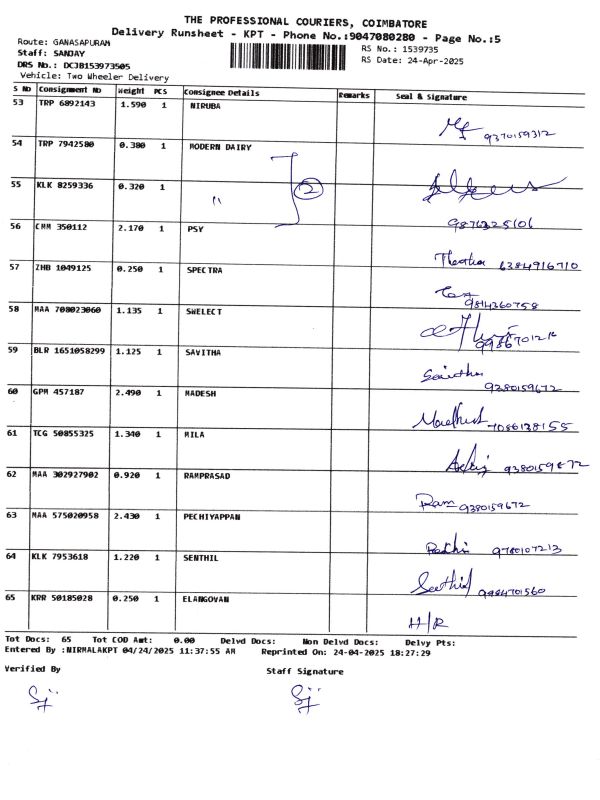 THE PROFESSIONAL COURIERS, COIMBATORE
Delivery Runsheet - KPT - Phone No.:9047080280 - Page No.:5
Route: GANASAPURAM
Staff: SANJAY
DRS No.: DCJB153973505
Vehicle: Two Wheeler Delivery
RS No.: 1539735
RS Date: 24-Apr-2025
S No Consignment No Weight PCS Consignee Details Remarks Seal & Signature
53 TRP 6892143 1.590 1 NIRUBA 9370159312
54 TRP 7942580 0.380 1 MODERN DAIRY
55 KLK 8259336 0.320 1 " 2
56 CMM 350112 2.170 1 PSY 9876325106
57 ZHB 1049125 0.250 1 SPECTRA 6384916710
58 MAA 708023060 1.135 1 SWELECT 9814360758
59 BLR 1651058299 1.125 1 SAVITHA Savitha 9380159672
60 GPM 457187 2.490 1 MADESH 7086138155
61 TCG 50855325 1.340 1 MILA 9380159872
62 MAA 302927902 0.920 1 RAMPRASAD Ram 9380159672
63 MAA 575020958 2.430 1 PECHIYAPPAN 9780107213
64 KLK 7953618 1.220 1 SENTHIL Senthil 9984701560
65 KRR 50185028 0.250 1 ELANGOVAN H/R
Tot Docs: 65 Tot COD Amt: 0.00 Delvd Docs: Non Delvd Docs: Delvy Pts:
Entered By :NIRMALAKPT 04/24/2025 11:37:55 AM Reprinted On: 24-04-2025 18:27:29
Verified By Staff Signature